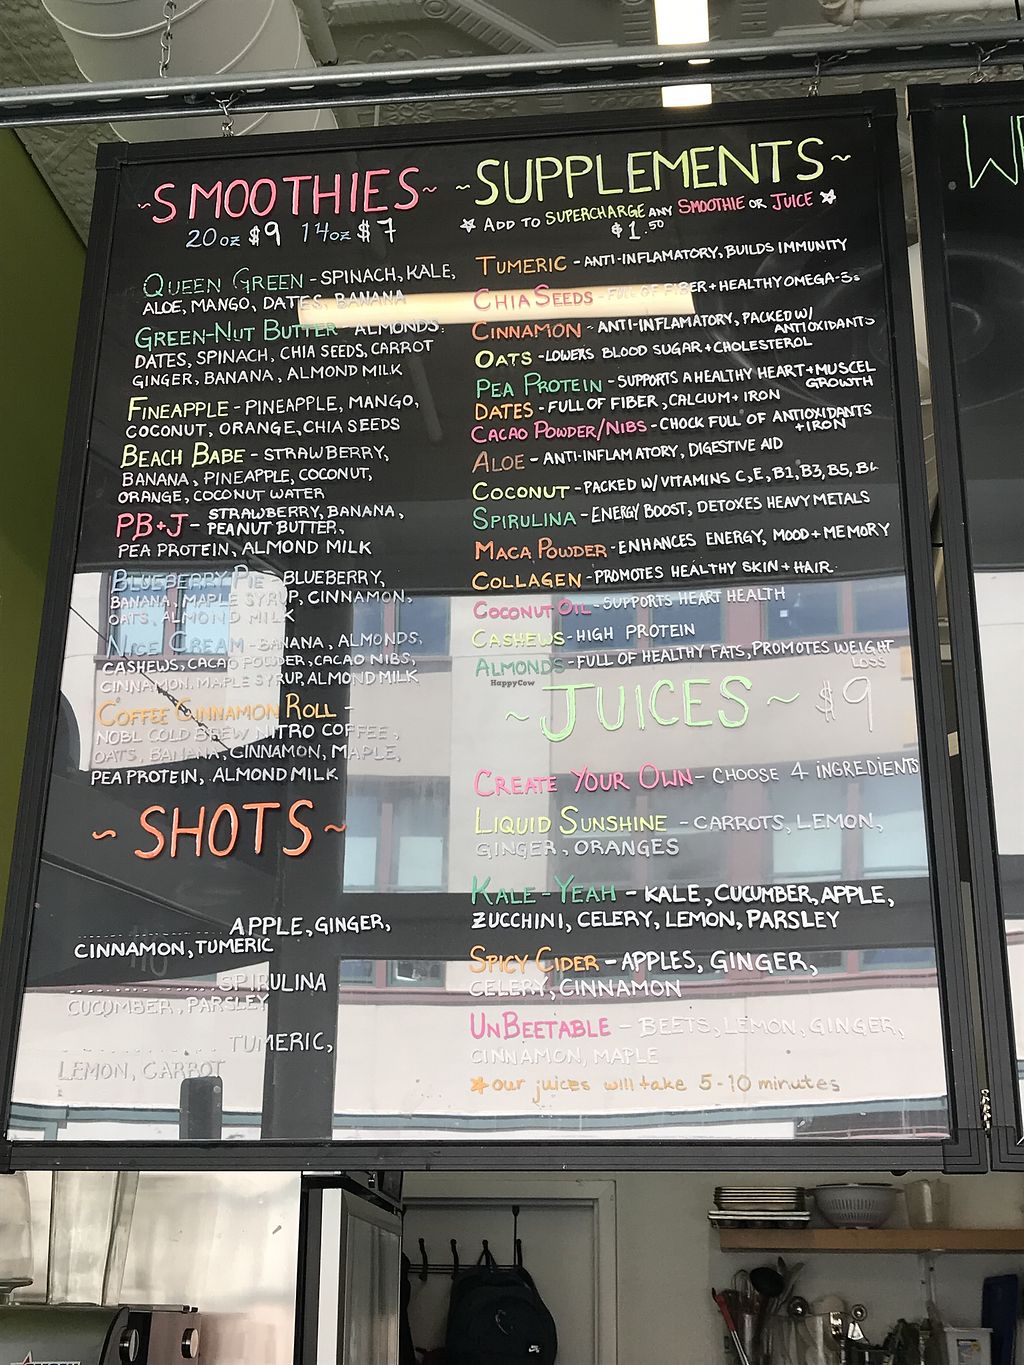 ~SMOOTHIES~
20oz $9 14oz $7
QUEEN GREEN - SPINACH, KALE,
ALOE, MANGO, DATES, BANANA
GREEN-NUT BUTTER - ALMONDS,
DATES, SPINACH, CHIA SEEDS, CARROT
GINGER, BANANA, ALMOND MILK
FINEAPPLE - PINEAPPLE, MANGO,
COCONUT, ORANGE, CHIA SEEDS
BEACH BABE - STRAWBERRY,
BANANA, PINEAPPLE, COCONUT,
ORANGE, COCONUT WATER
PB+J - STRAWBERRY, BANANA,
PEANUT BUTTER,
PEA PROTEIN, ALMOND MILK
BLUEBERRY PIE - BLUEBERRY,
BANANA, MAPLE SYRUP, CINNAMON,
OATS, ALMOND MILK
NICE CREAM - BANANA, ALMONDS,
CASHEWS, CACAO POWDER, CACAO NIBS,
CINNAMON, MAPLE SYRUP, ALMOND MILK
COFFEE CINNAMON ROLL -
NOBL COLD BREW NITRO COFFEE,
OATS, BANANA, CINNAMON, MAPLE,
PEA PROTEIN, ALMOND MILK
~ SHOTS ~
APPLE, GINGER,
CINNAMON, TUMERIC
SPIRULINA
CUCUMBER, PARSLEY
TUMERIC,
LEMON, CARROT
~SUPPLEMENTS~
ADD TO SUPERCHARGE ANY SMOOTHIE OR JUICE
$1.50
TUMERIC - ANTI-INFLAMATORY, BUILDS IMMUNITY
CHIA SEEDS - FULL OF FIBER + HEALTHY OMEGA-3s
CINNAMON - ANTI-INFLAMATORY, PACKED W/
ANTIOXIDANTS
OATS - LOWERS BLOOD SUGAR + CHOLESTEROL
PEA PROTEIN - SUPPORTS A HEALTHY HEART + MUSCEL
GROWTH
DATES - FULL OF FIBER, CALCIUM + IRON
CACAO POWDER/NIBS - CHOCK FULL OF ANTIOXIDANTS
+ IRON
ALOE - ANTI-INFLAMATORY, DIGESTIVE AID
COCONUT - PACKED W/ VITAMINS C, E, B1, B3, B5, B6
SPIRULINA - ENERGY BOOST, DETOXES HEAVY METALS
MACA POWDER - ENHANCES ENERGY, MOOD + MEMORY
COLLAGEN - PROMOTES HEALTHY SKIN + HAIR
COCONUT OIL - SUPPORTS HEART HEALTH
CASHEWS - HIGH PROTEIN
ALMONDS - FULL OF HEALTHY FATS, PROMOTES WEIGHT
LOSS
HappyCow
~ JUICES ~ $9
CREATE YOUR OWN - CHOOSE 4 INGREDIENTS
LIQUID SUNSHINE - CARROTS, LEMON,
GINGER, ORANGES
KALE-YEAH - KALE, CUCUMBER, APPLE,
ZUCCHINI, CELERY, LEMON, PARSLEY
SPICY CIDER - APPLES, GINGER,
CELERY, CINNAMON
UNBEETABLE - BEETS, LEMON, GINGER,
CINNAMON, MAPLE
our juices will take 5-10 minutes